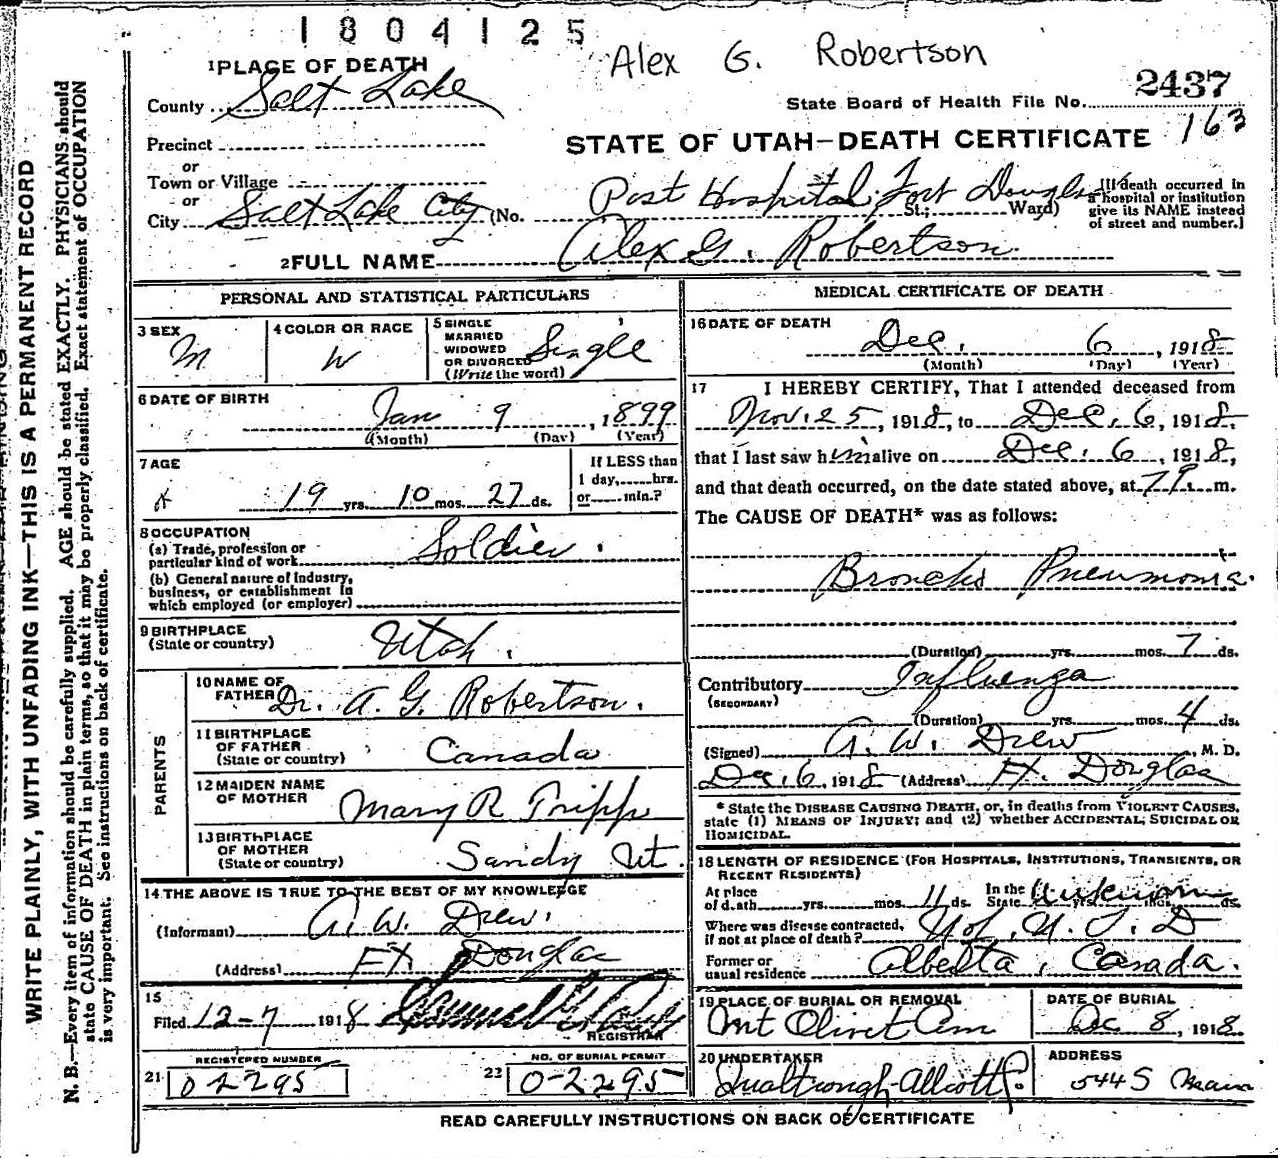 1804125
Alex G. Robertson
1 PLACE OF DEATH
County Salt Lake
2437
State Board of Health File No.
163
STATE OF UTAH—DEATH CERTIFICATE
Precinct
or
Town or Village
or
City Salt Lake City (No. Post Hospital, Fort Douglas St.; Ward)
[If death occurred in a hospital or institution give its NAME instead of street and number.]
2 FULL NAME Alex G. Robertson.
PERSONAL AND STATISTICAL PARTICULARS
3 SEX M
4 COLOR OR RACE W
5 SINGLE MARRIED WIDOWED OR DIVORCED (Write the word) Single
6 DATE OF BIRTH
Jan 9, 1899
(Month) (Day) (Year)
7 AGE
19 yrs. 10 mos. 27 ds.
If LESS than 1 day, hrs. or min.?
8 OCCUPATION
(a) Trade, profession or particular kind of work Soldier.
(b) General nature of Industry, business, or establishment in which employed (or employer)
9 BIRTHPLACE (State or country) Utah.
PARENTS
10 NAME OF FATHER Dr. A. G. Robertson.
11 BIRTHPLACE OF FATHER (State or country) Canada
12 MAIDEN NAME OF MOTHER Mary R Tripp
13 BIRTHPLACE OF MOTHER (State or country) Sandy Ut.
14 THE ABOVE IS TRUE TO THE BEST OF MY KNOWLEDGE
(Informant) A. W. Drew.
(Address) Ft. Douglas
15
Filed 12-7 1918
REGISTRAR
REGISTERED NUMBER
21 02295
NO. OF BURIAL PERMIT
22 0-2295
MEDICAL CERTIFICATE OF DEATH
16 DATE OF DEATH
Dec. 6, 1918
(Month) (Day) (Year)
17 I HEREBY CERTIFY, That I attended deceased from
Nov. 25, 1918, to Dec. 6, 1918.
that I last saw him alive on Dec. 6, 1918,
and that death occurred, on the date stated above, at m.
The CAUSE OF DEATH* was as follows:
Broncho Pneumonia.
(Duration) yrs. mos. 7 ds.
Contributory Influenza
(SECONDARY)
(Duration) yrs. mos. 4 ds.
(Signed) A. W. Drew M. D.
Dec. 6, 1918 (Address) Ft. Douglas
* State the DISEASE CAUSING DEATH, or, in deaths from VIOLENT CAUSES,
state (1) MEANS OF INJURY; and (2) whether ACCIDENTAL, SUICIDAL OR
HOMICIDAL.
18 LENGTH OF RESIDENCE (FOR HOSPITALS, INSTITUTIONS, TRANSIENTS, OR
RECENT RESIDENTS)
At place of death yrs. mos. 11 ds. In the State Unknown yrs. mos. ds.
Where was disease contracted, if not at place of death? U of U. F. D
Former or usual residence Alberta, Canada.
19 PLACE OF BURIAL OR REMOVAL
Mt Olivet Cem
DATE OF BURIAL
Dec 8, 1918.
20 UNDERTAKER
ADDRESS
544 S Main
READ CAREFULLY INSTRUCTIONS ON BACK OF CERTIFICATE
WRITE PLAINLY, WITH UNFADING INK—THIS IS A PERMANENT RECORD
N. B.—Every item of information should be carefully supplied. AGE should be stated EXACTLY. PHYSICIANS should
state CAUSE OF DEATH in plain terms, so that it may be properly classified. Exact statement of OCCUPATION
is very important. See instructions on back of certificate.